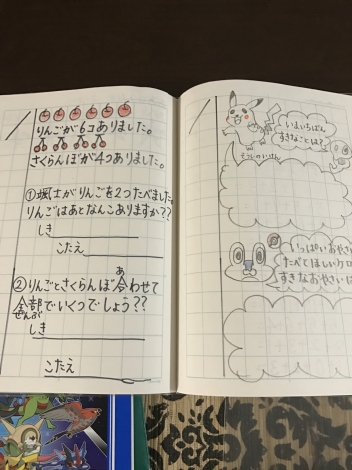 りんごが6コありました。
さくらんぼが4つありました。
①颯士がりんごを2つたべました。
りんごはあとなんこありますか??
しき
こたえ
②りんごとさくらんぼ合わせて
あ
全部でいくつでしょう??
ぜんぶ
しき
こたえ
いまいちばん
すきなことは?
いっぱいおやさい
たべてほしいケロ
すきなおやさいは